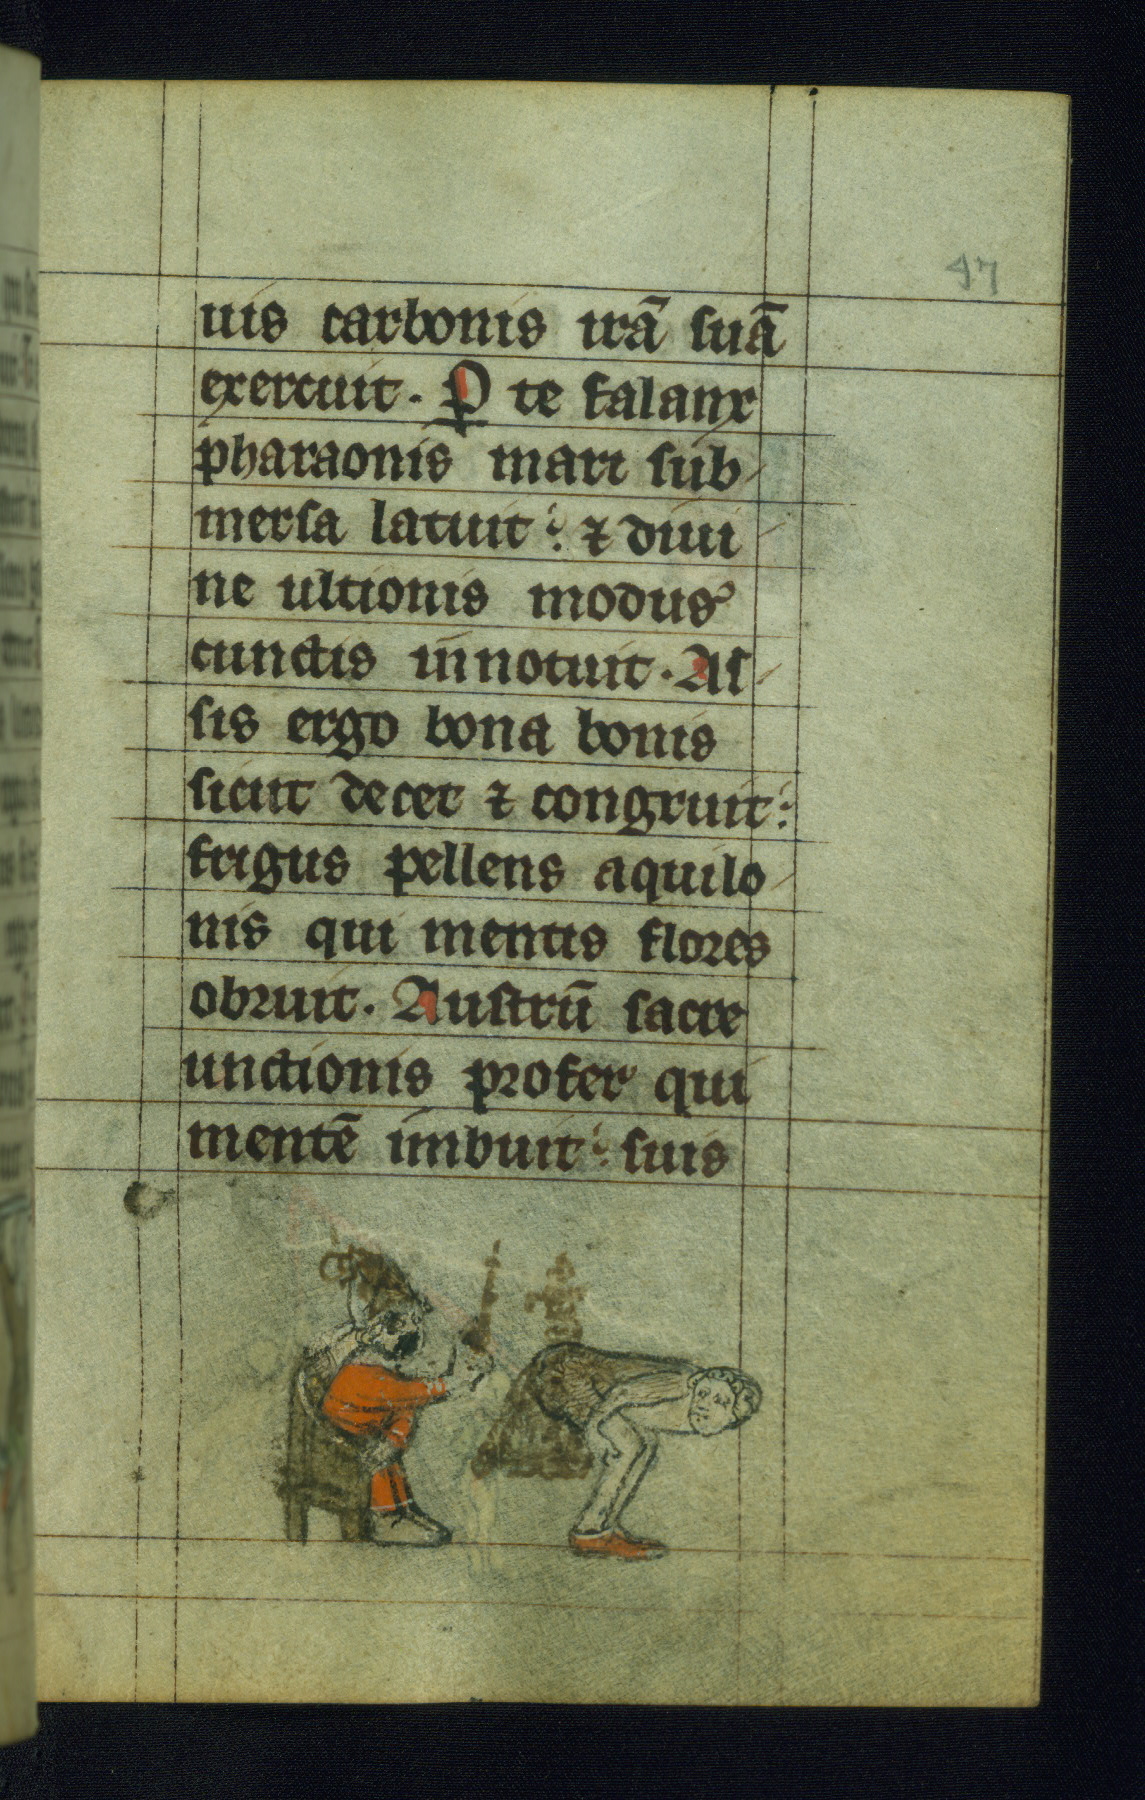 47
uis carbonis irā suā
exercuit. Ꝑ te falanx
pharaonis mari sub
mersa latuit: ⁊ diui
ne ultionis modus
cunctis innotuit. As
sis ergo bona bonis
sicut decet ⁊ congruit:
frigus pellens aquilo
nis qui mentis flores
obruit. Austrū sacre
unctionis profer qui
mentē imbuit: suis